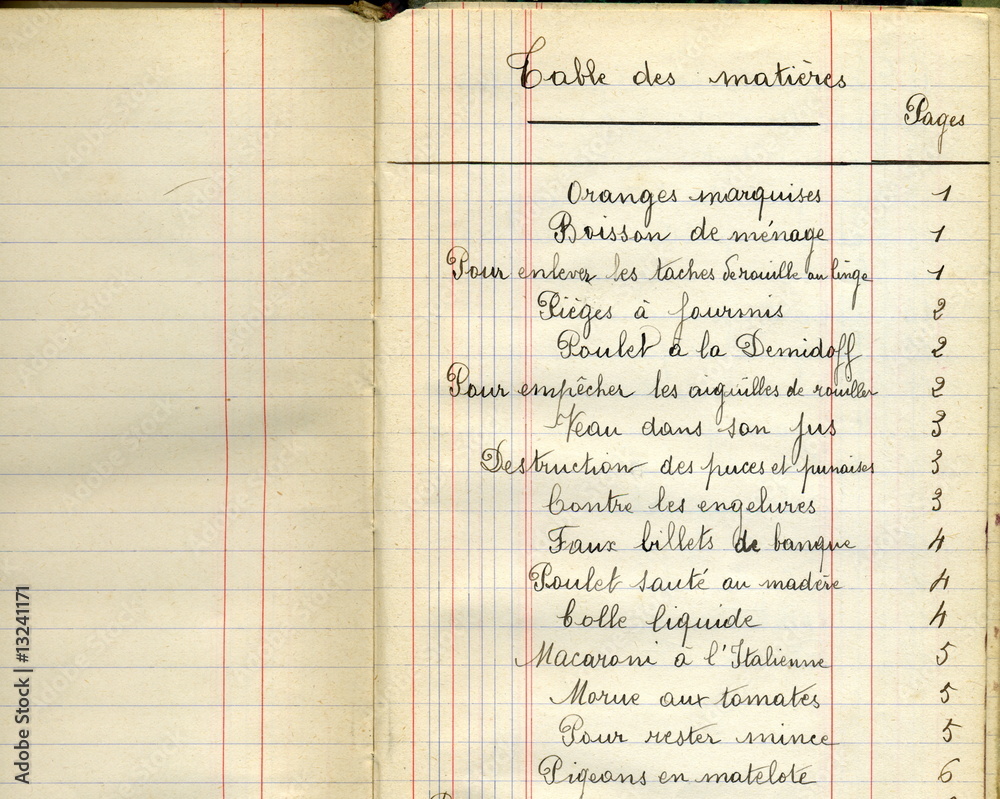 Table des matières
Pages
Oranges marquises 1
Boisson de ménage 1
Pour enlever les taches de rouille au linge 1
Pièges à fourmis 2
Poulet à la Demidoff 2
Pour empêcher les aiguilles de rouiller 2
Veau dans son jus 3
Destruction des puces et punaises 3
Contre les engelures 3
Faux billets de banque 4
Poulet sauté au madère 4
Colle liquide 4
Macaroni à l'Italienne 5
Morue aux tomates 5
Pour rester mince 5
Pigeons en matelote 6
Adobe Stock | #13241171